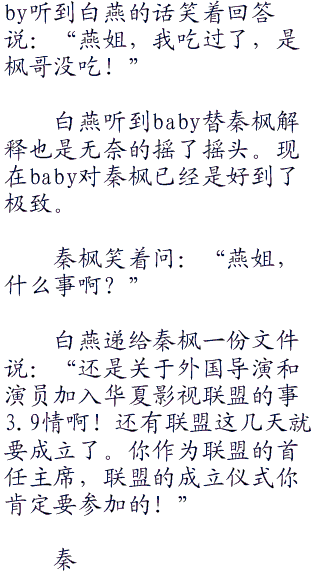 by听到白燕的话笑着回答
说：“燕姐，我吃过了，是
枫哥没吃！”
白燕听到baby替秦枫解
释也是无奈的摇了摇头。现
在baby对秦枫已经是好到了
极致。
秦枫笑着问：“燕姐，
什么事啊？”
白燕递给秦枫一份文件
说：“还是关于外国导演和
演员加入华夏影视联盟的事
3.9情啊！还有联盟这几天就
要成立了。你作为联盟的首
任主席，联盟的成立仪式你
肯定要参加的！”
秦